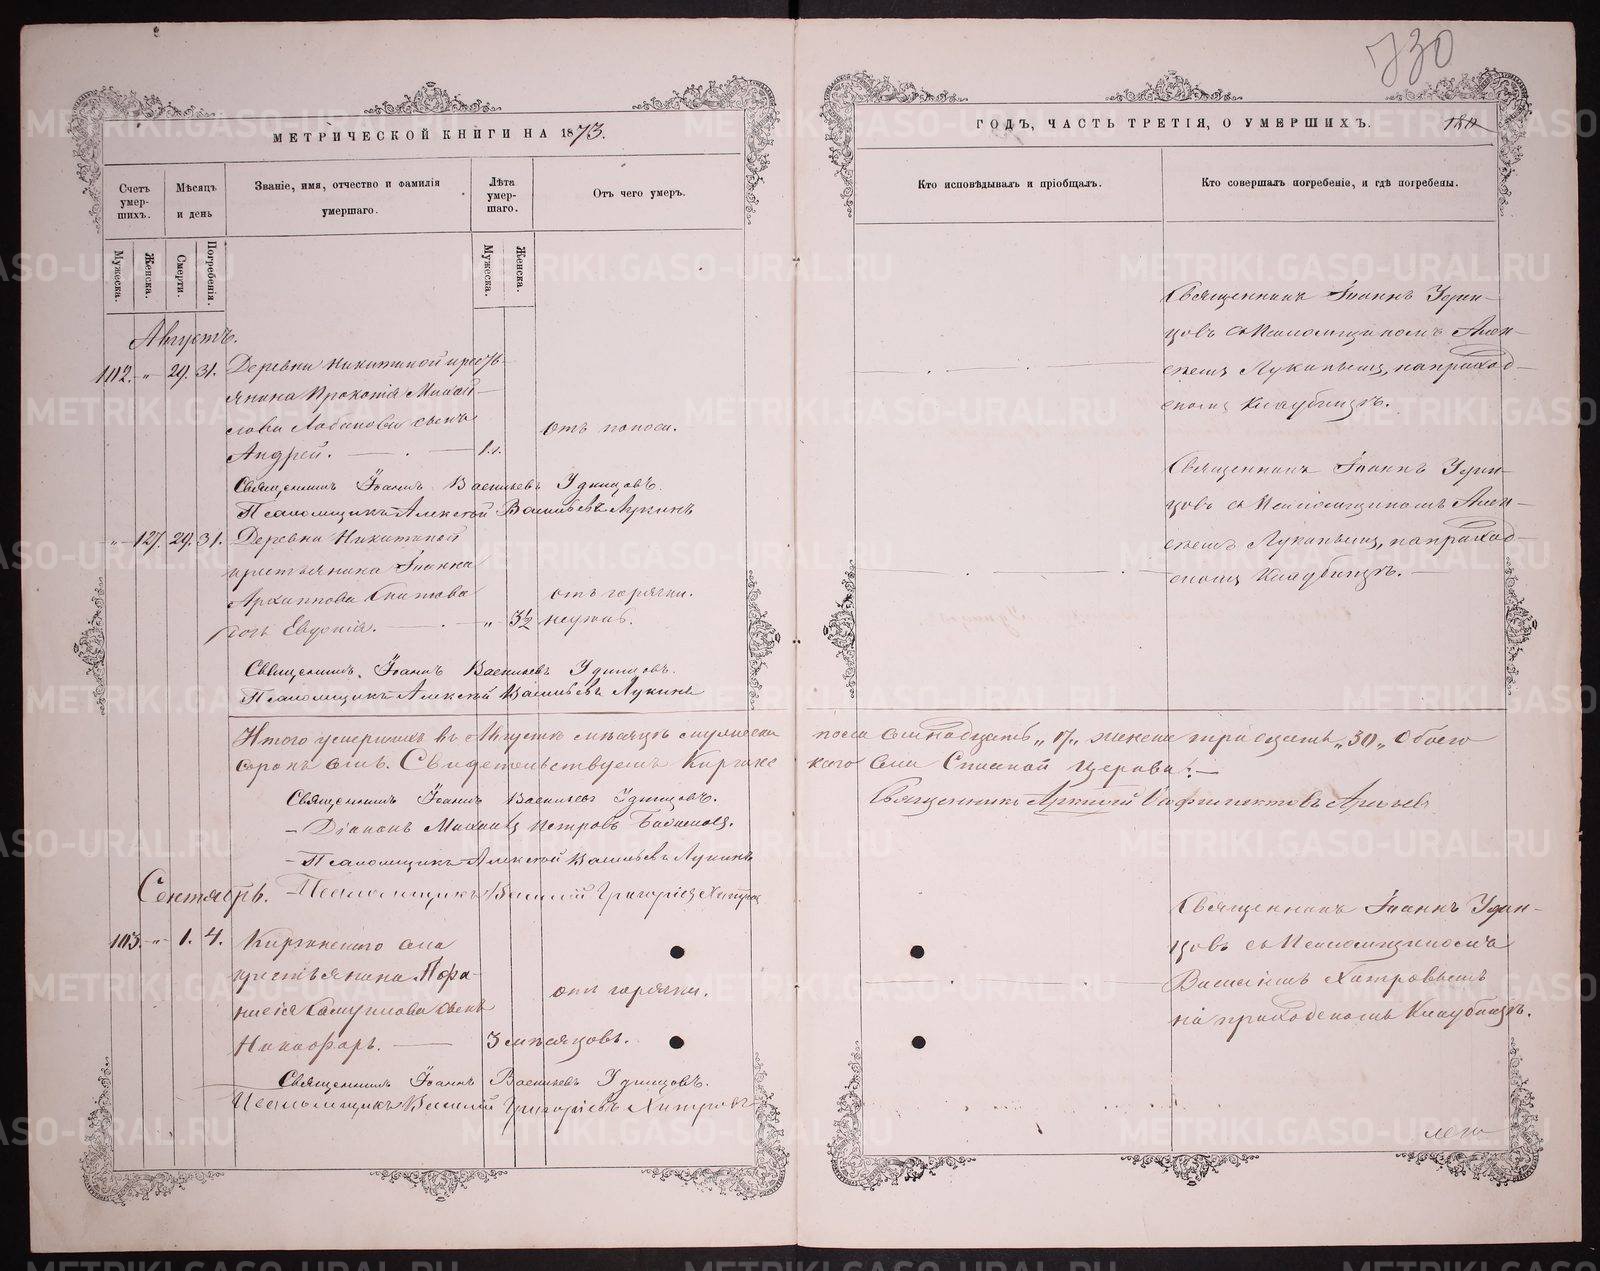 730
МЕТРИЧЕСКОЙ КНИГИ НА 1873.
Счетъ умерших.
Мѣсяцъ и день
Званіе, имя, отчество и фамилія умершаго.
Лѣта умершаго.
Отъ чего умеръ.
Мужеска.
Женска.
Смерти.
Погребенія.
Мужеска.
Женска.
Августъ.
102. „ 29. 31.
Деревни Никитиной кресть-
янина Прокопія Михай-
лова Лобанова сынъ
Андрей.
1 г.
отъ поноса.
Священникъ Іоаннъ Васильевъ Удинцовъ.
Псаломщикъ Алексѣй Васильевъ Лукинъ
„ 127. 29. 31.
Деревни Никитиной
крестьянина Іоанна
Архиппова
дочь Евдокія. „ 3½ недѣль.
отъ горячки.
Священникъ Іоаннъ Васильевъ Удинцовъ.
Псаломщикъ Алексѣй Васильевъ Лукинъ
Итого умершихъ въ Августѣ мѣсяцѣ мужеска
сорокъ семь. Свидетельствуемъ Киргишанс
Священникъ Іоаннъ Васильевъ Удинцовъ.
– Діаконъ Михаилъ Петровъ
– Псаломщикъ Алексѣй Васильевъ Лукинъ
– Псаломщикъ Василій Григоріевъ Хитров
Сентябрь.
103. „ 1. 4.
села
крестьянина Афа-
насія Самуилова сынъ
Никифоръ.
3 мѣсяцовъ.
отъ горячки.
Священникъ Іоаннъ Васильевъ Удинцовъ.
Псаломщикъ Василій Григоріевъ Хитровъ
ГОДЪ, ЧАСТЬ ТРЕТІЯ, О УМЕРШИХЪ.
180
Кто исповѣдывалъ и пріобщалъ.
Кто совершалъ погребеніе, и гдѣ погребены.
Священникъ Іоаннъ Удин-
цовъ съ Псаломщикомъ Алек-
сѣемъ Лукинымъ, на приход-
скомъ Кладбищѣ.
Священникъ Іоаннъ Удин-
цовъ съ Псаломщикомъ Алек-
сѣемъ Лукинымъ, на приход-
скомъ Кладбищѣ.
пола семнадцать „17„ женска тридцать „30„ обоего
каго села Спаской Церкви:
Священникъ
Священникъ Іоаннъ Удин-
цовъ съ Псаломщикомъ
Василіемъ Хитровымъ
на приходскомъ Кладбищѣ.
METRIKI.GASO-URAL.RU